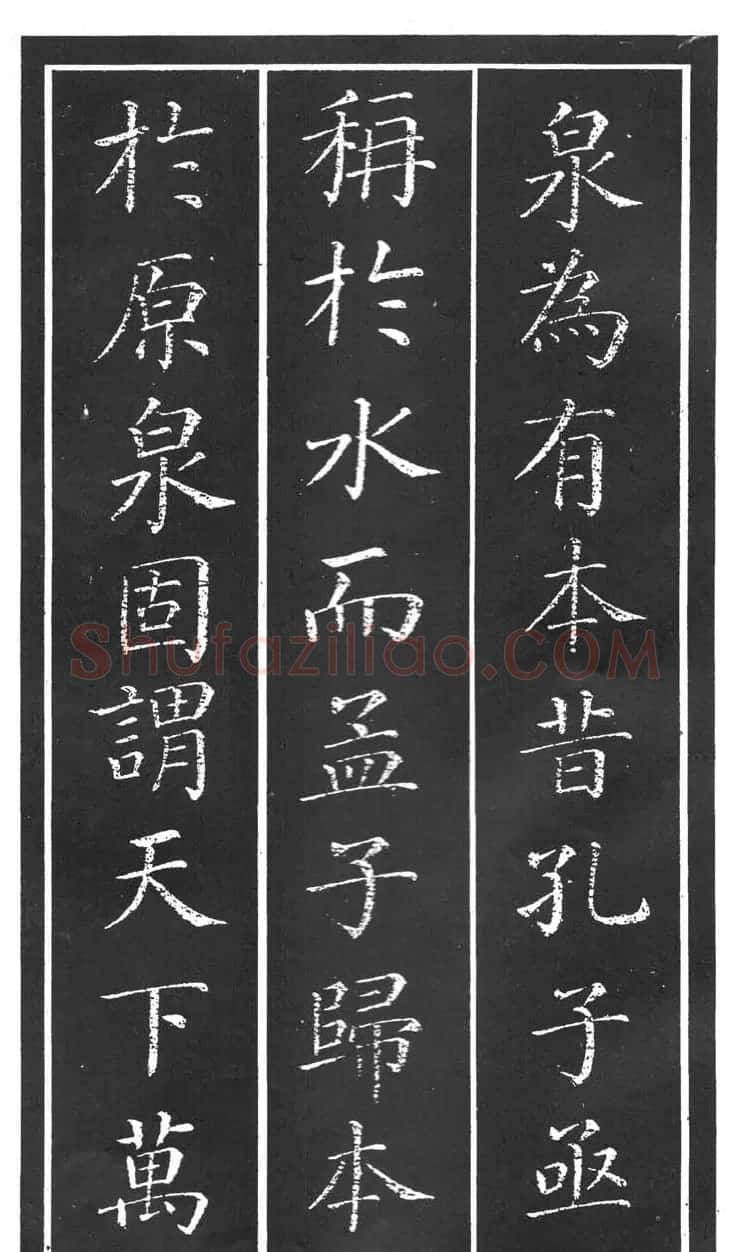 泉為有本昔孔子亟
稱於水而孟子歸本
於原泉固謂天下萬
Shufaziliao.COM